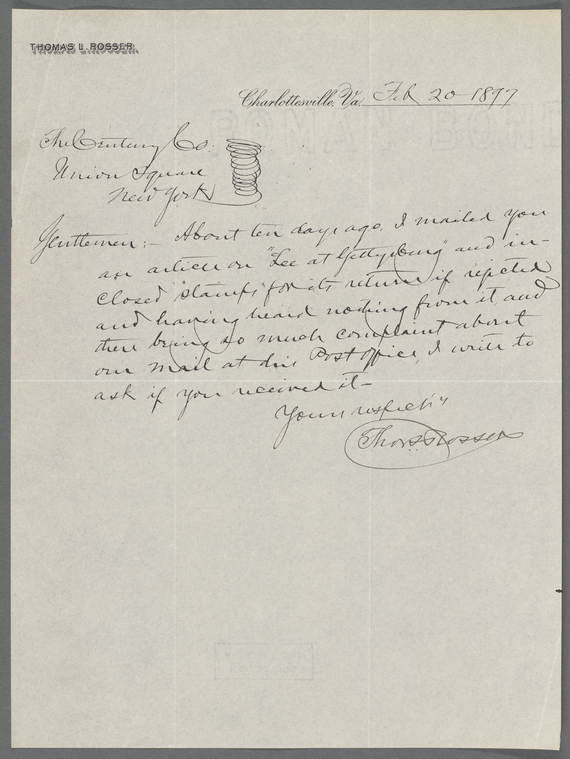 THOMAS L. ROSSER.
Charlottesville, Va. Feb 20 1897
The Century Co.
Union Square
New York
Gentlemen:— About ten days ago, I mailed you
an article on "Lee at Gettysburg" and in-
closed "stamps" for its return if rejected
and having heard nothing from it and
there being so much complaint about
our mail at this Post office, I write to
ask if you received it—
Yours respectfully
Thos L Rosser